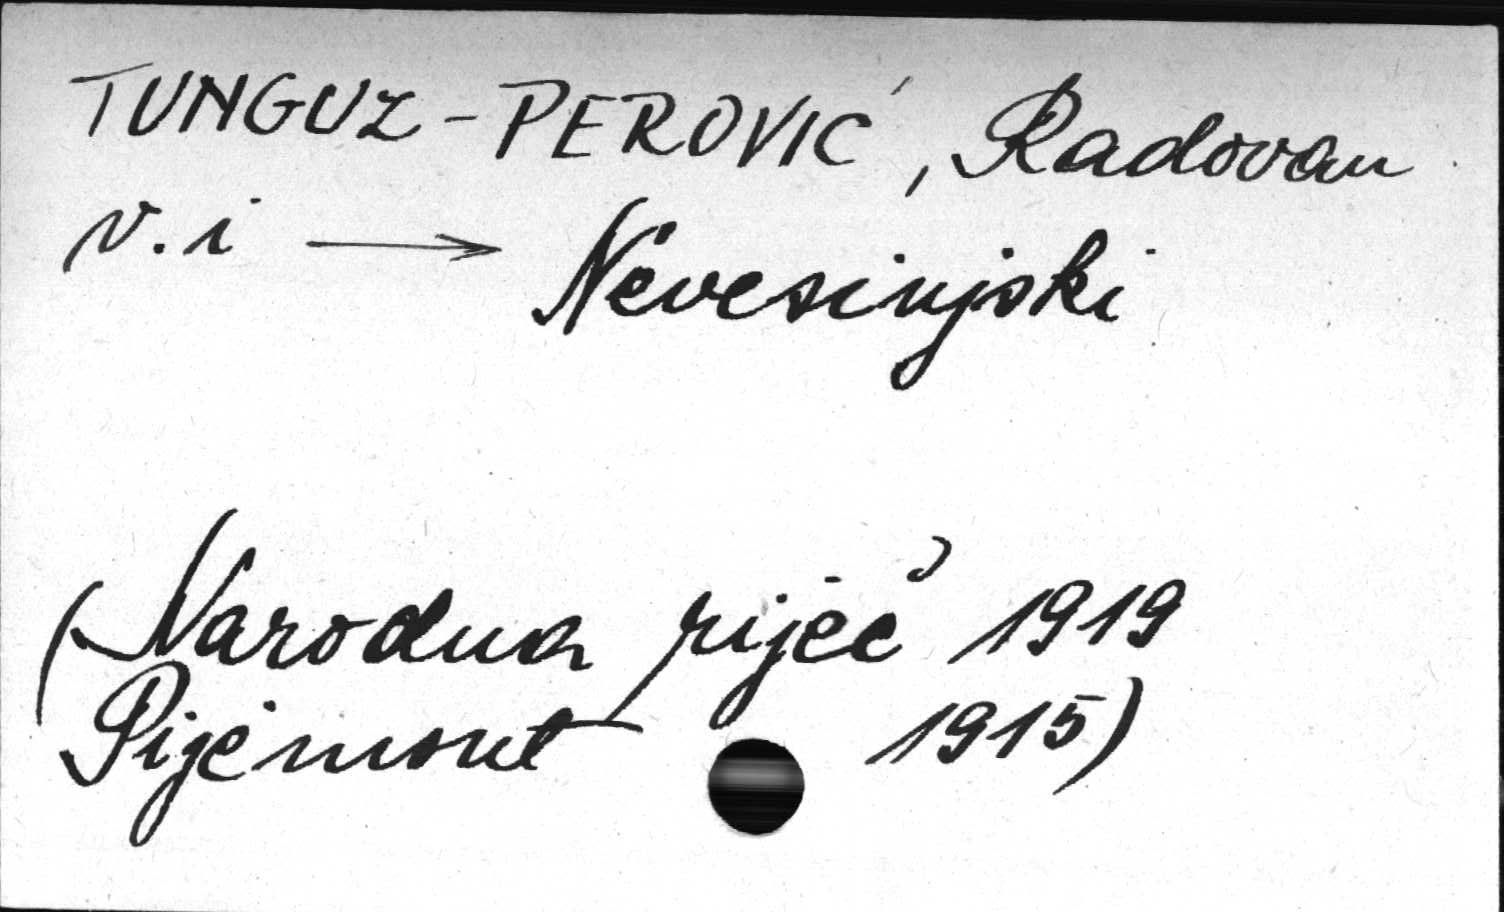 TUNGUZ - PEROVIĆ, Radovan
v. i → Nevesinjski
(Narodna riječ 1919
Pijemont 1915)